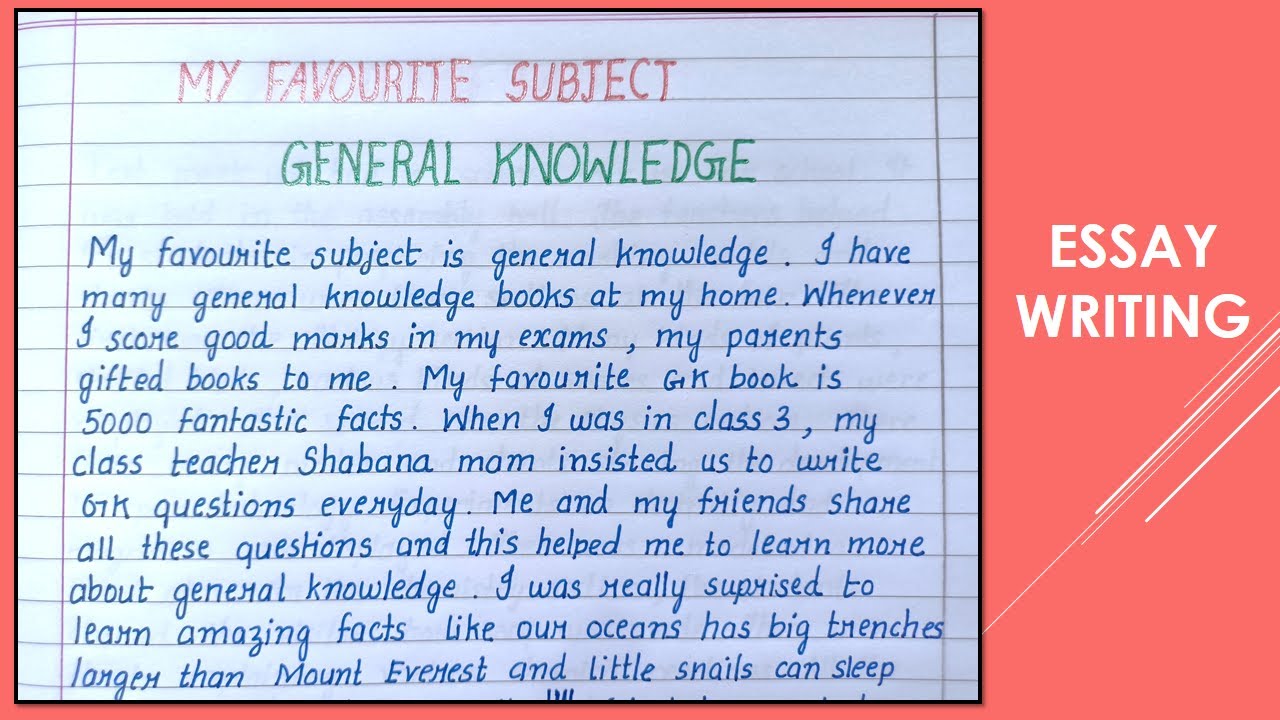 MY FAVOURITE SUBJECT
GENERAL KNOWLEDGE
My favourite subject is general knowledge. I have
many general knowledge books at my home. Whenever
I score good marks in my exams, my parents
gifted books to me. My favourite GK book is
5000 fantastic facts. When I was in class 3, my
class teacher Shabana mam insisted us to write
GK questions everyday. Me and my friends share
all these questions and this helped me to learn more
about general knowledge. I was really suprised to
learn amazing facts like our oceans has big trenches
larger than Mount Everest and little snails can sleep
ESSAY
WRITING